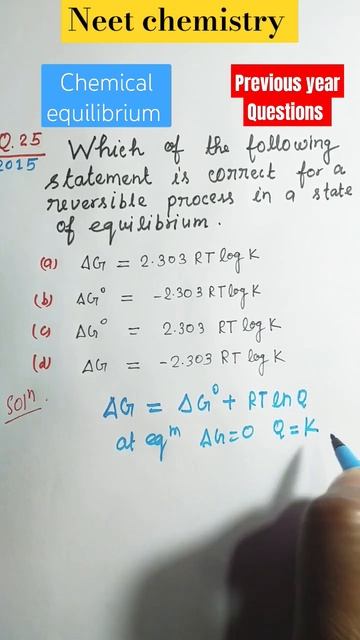 Neet chemistry
Chemical
equilibrium
Previous year
Questions
Q.25
2015
Which of the following
statement is correct for a
reversible process in a state
of equilibrium.
(a) ΔG = 2.303 RT log K
(b) ΔG° = -2.303 RT log K
(c) ΔG° = 2.303 RT log K
(d) ΔG = -2.303 RT log K
Solⁿ.
ΔG = ΔG° + RT ln Q
at eqᵐ ΔG=0 Q=K